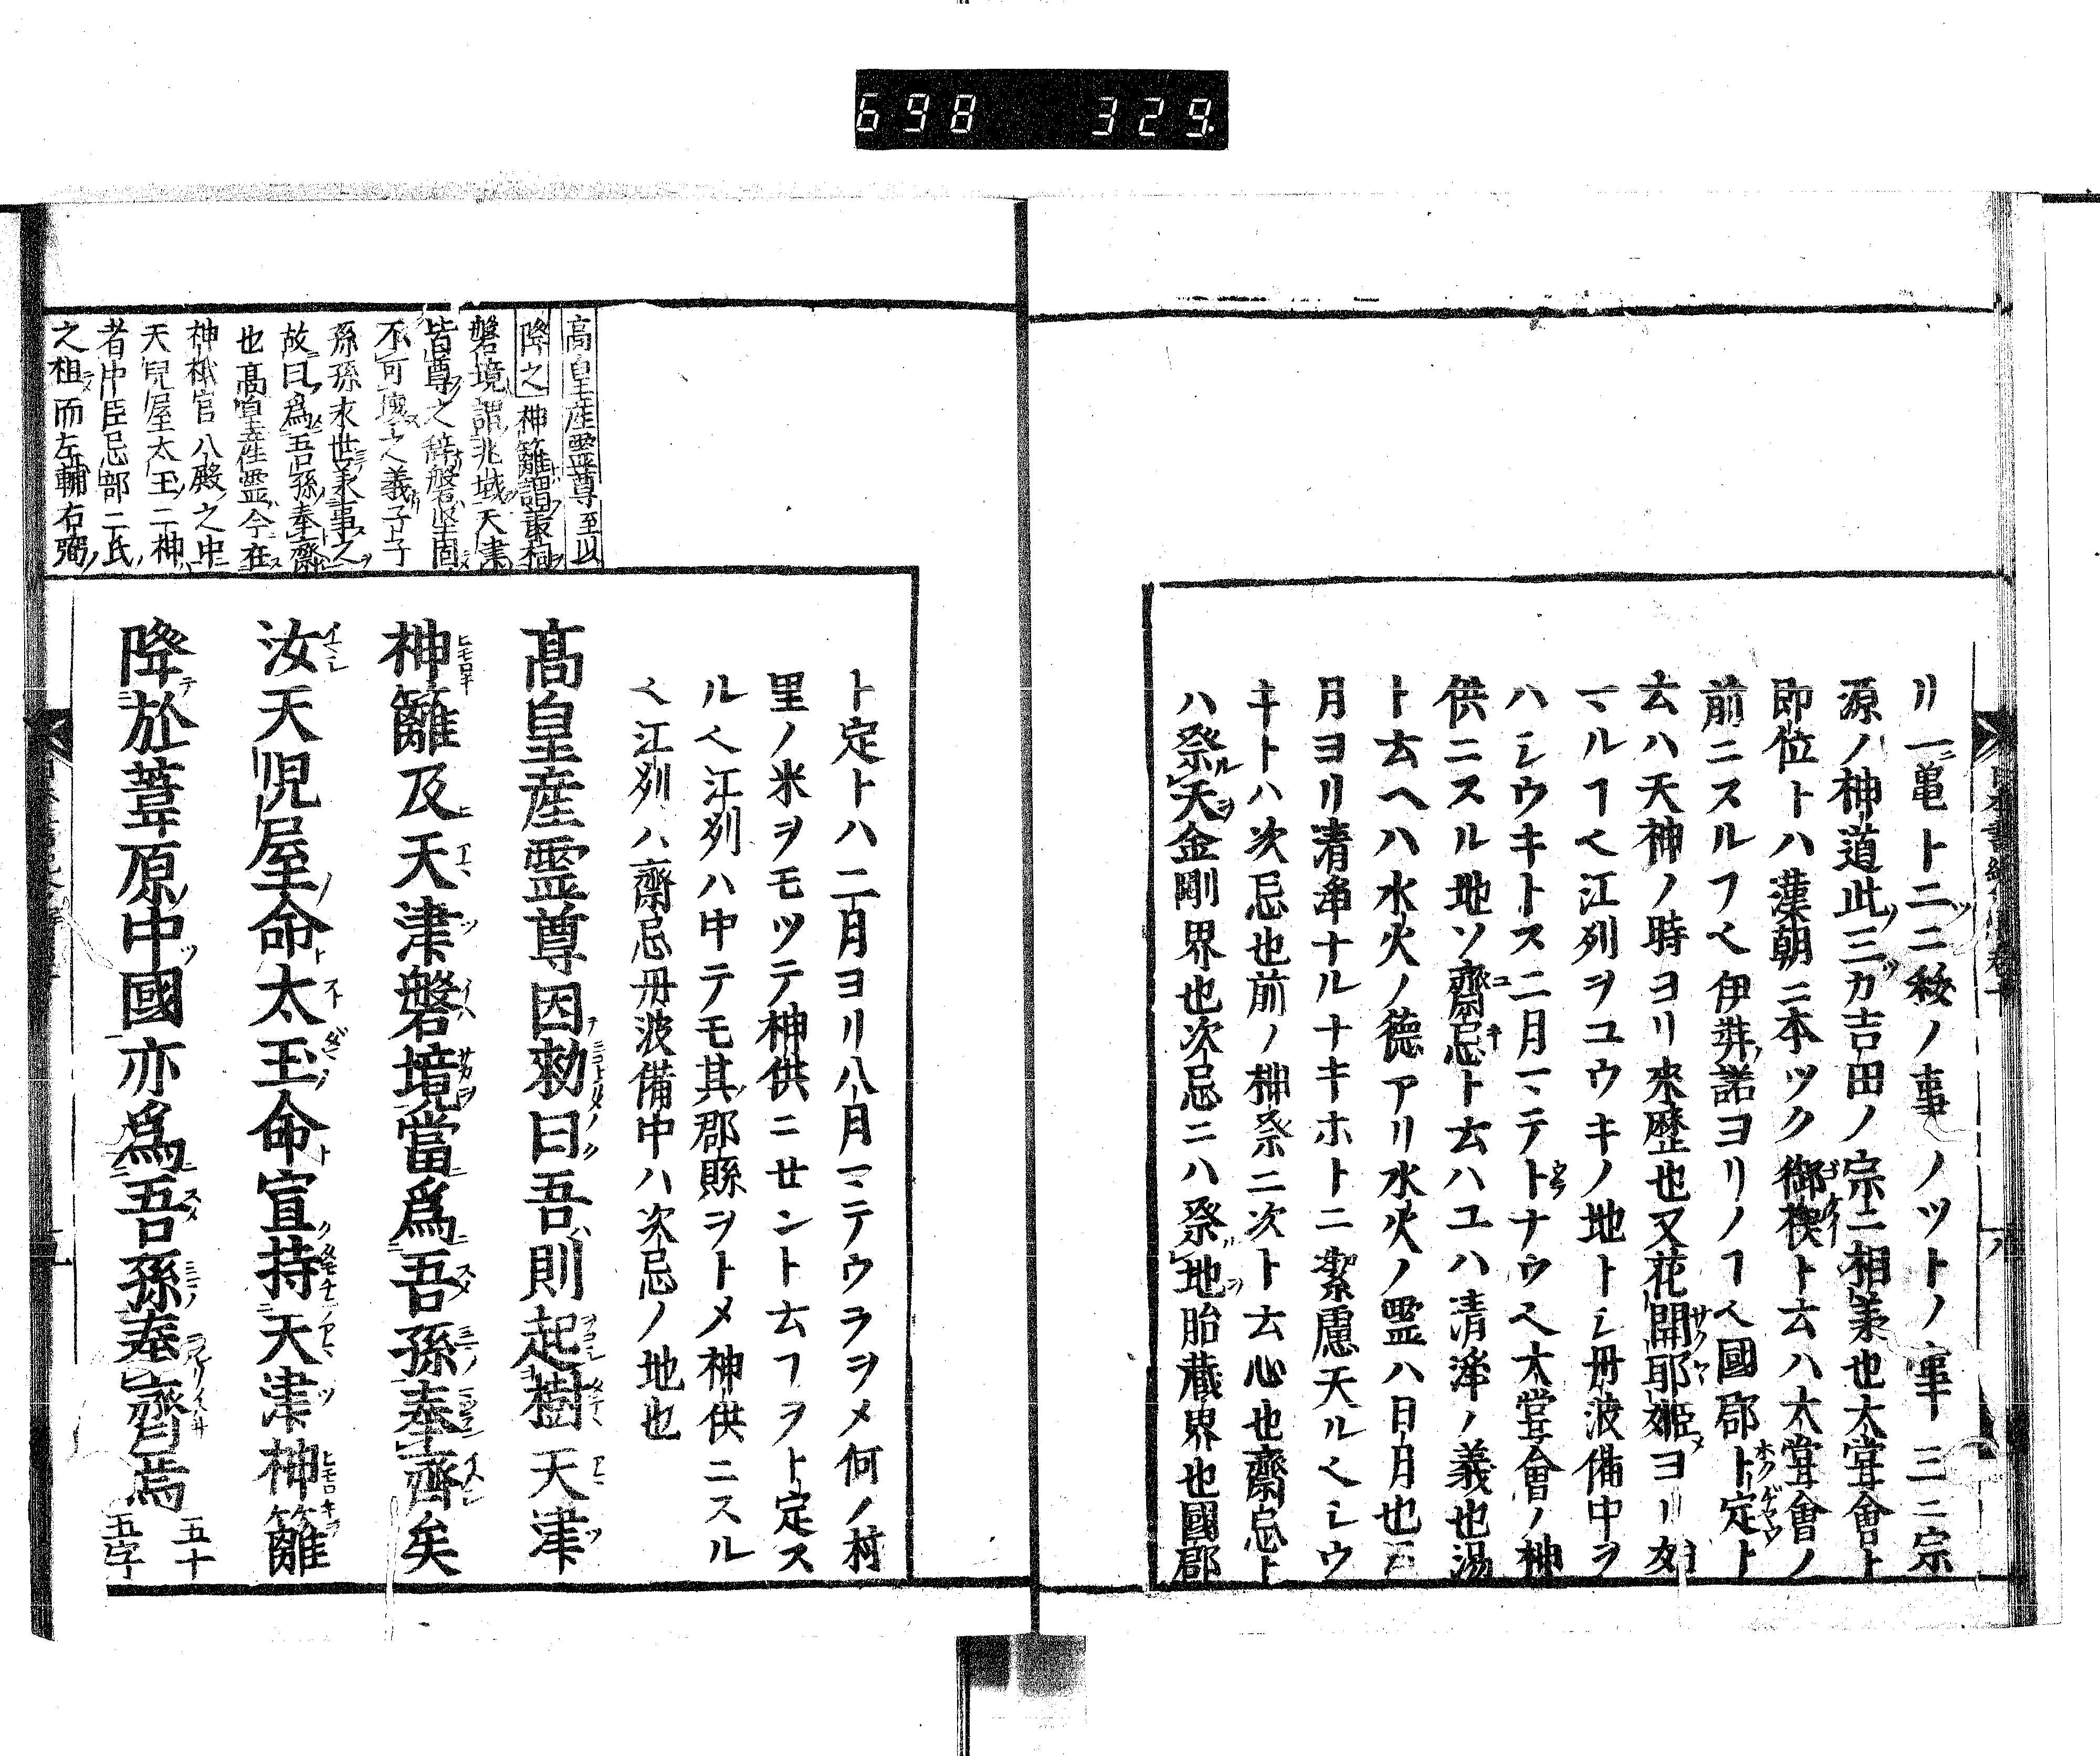 698 329
リ一亀ト二二秘ノ事ノツトノ事三ニ宗
源ノ神道此三カ吉田ノ宗ニ相羕也大甞會ト
即位トハ漢朝ニ本ツク御禊ト云ハ大甞會ノ
前ニスルフヘ伊弉諾ヨリノヿヘ國郡ト定ト
云ハ天神ノ時ヨリ来歴也又花開耶姫ヨリ女
マルヿヘ江刕ヲユウキノ地トシ丹波備中ヲ
ハシウキトス二月マテトナウヘ大甞會ノ神
供ニスル地ソ齋忌ト云ハユハ清浄ノ義也湯
ト云ヘハ水火ノ德アリ水火ノ霊ハ日月也
月ヨリ清浄ナルナキホトニ潔慮天ルヘシウ
キトハ次忌也前ノ神祭ニ次ト云心也齋忌ト
ハ祭天金剛界也次忌ニハ祭地胎蔵界也國郡
ト定トハ二月ヨリ八月マテウラヲメ何ノ村
里ノ米ヲモツテ神供ニせント云フヲト定ス
ルヘ江刕ハ中テモ其郡縣ヲトメ神供ニスル
ヘ江刕ハ齋忌丹波備中ハ次忌ノ地也
高皇産霊尊因勅曰吾則起樹天津
神籬及天津磐境當爲吾孫奉齋矣
汝天児屋命太玉命宜持天津神籬
降於葦原中國亦爲吾孫奉齋焉 五十五字
高皇産霊尊至以
降之 神籬謂叢祠
磐境謂兆域天津
皆尊之辞磐堅固
不可壊之義子子
孫孫永世羕事之
故曰爲吾孫奉齋
也高皇産霊今在
神祇官八殿之中
天児屋太玉二神
者中臣忌部二氏
之祖而左輔右弼